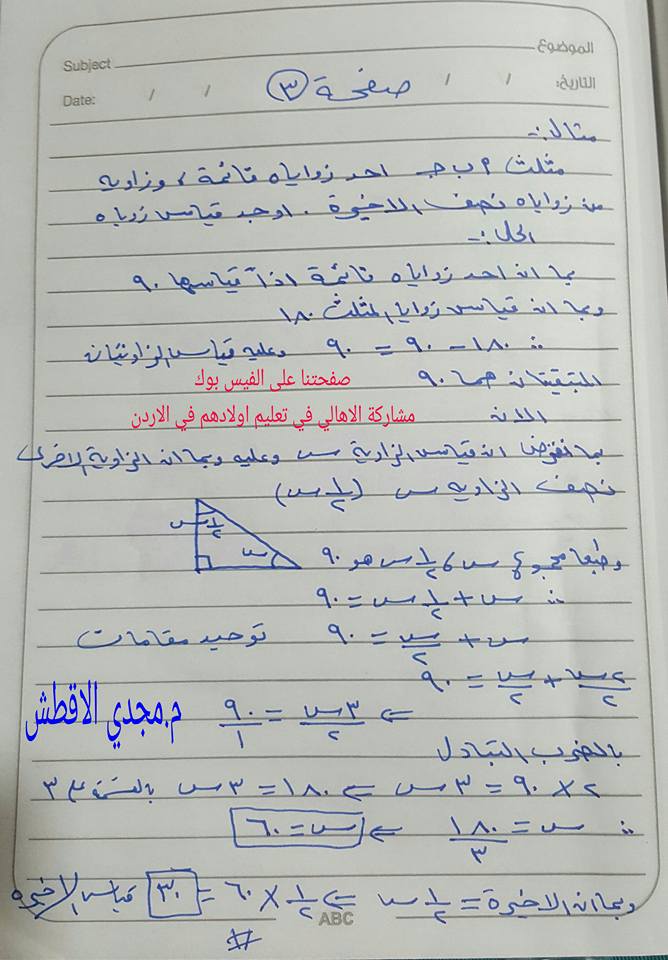 الموضوع
Subject
التاريخ: / /
Date: / /
صفحة (٣)
مثال:-
مثلث م ب جـ احد زواياه قائمة، وزاويه
من زواياه نصف الاخيرة. اوجد قياس زوياه
الحل:-
بما ان احد زواياه قائمة اذاً قياسها ٩٠
وبما ان قياس زوايا المثلث ١٨٠
∴ ١٨٠ - ٩٠ = ٩٠ وعليه قياس الزاويتان
المتبقيتان هما ٩٠
صفحتنا على الفيس بوك
الان
مشاركة الاهالي في تعليم اولادهم في الاردن
بما نفترض ان قياس الزاوية س وعليه وبما ان الزاوية الاخرى
نصف الزاويه س (١/٢ س)
١/٢ س
س
وطبعا مجموع س، ١/٢ س هو ٩٠
∴ س + ١/٢ س = ٩٠
س + س/٢ = ٩٠ توحيد مقامات
٢س/٢ + س/٢ = ٩٠
⇐ ٣س/٢ = ٩٠/١
م.مجدي الاقطش
بالضرب التبادل
٢ × ٩٠ = ٣س ⇐ ١٨٠ = ٣س بالقسمة على ٣
∴ س = ١٨٠/٣ ⇐ س = ٦٠
وبما ان الاخيرة = ١/٢ س ⇐ ١/٢ × ٦٠ = ٣٠ قياس الاخيره
ABC
#